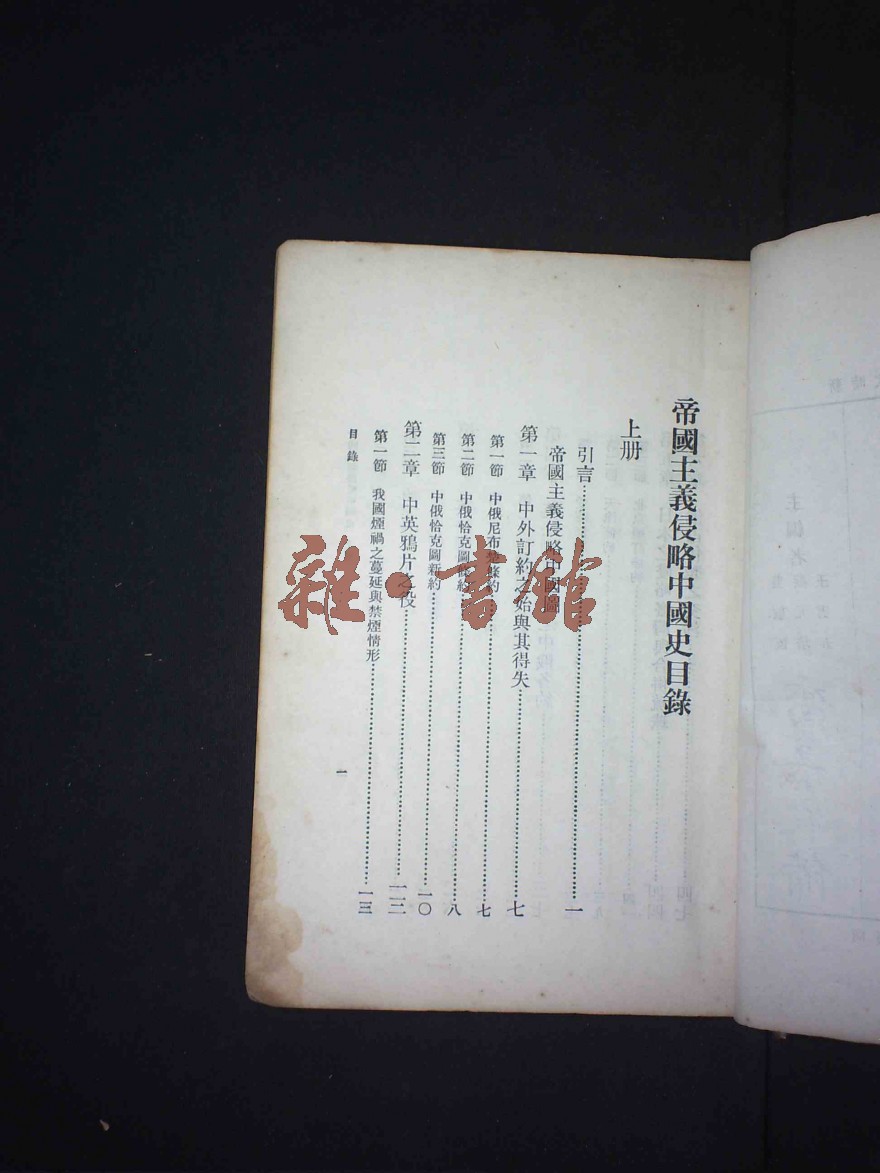 帝國主義侵略中國史目錄
上册
引言……一
帝國主義侵略中國圖
第一章 中外訂約之始與其得失……七
第一節 中俄尼布楚條約……七
第二節 中俄恰克圖條約……八
第三節 中俄恰克圖新約……一〇
第二章 中英鴉片之役……一二
第一節 我國煙禍之蔓延與禁煙情形……一三
目錄 一
雜·書館